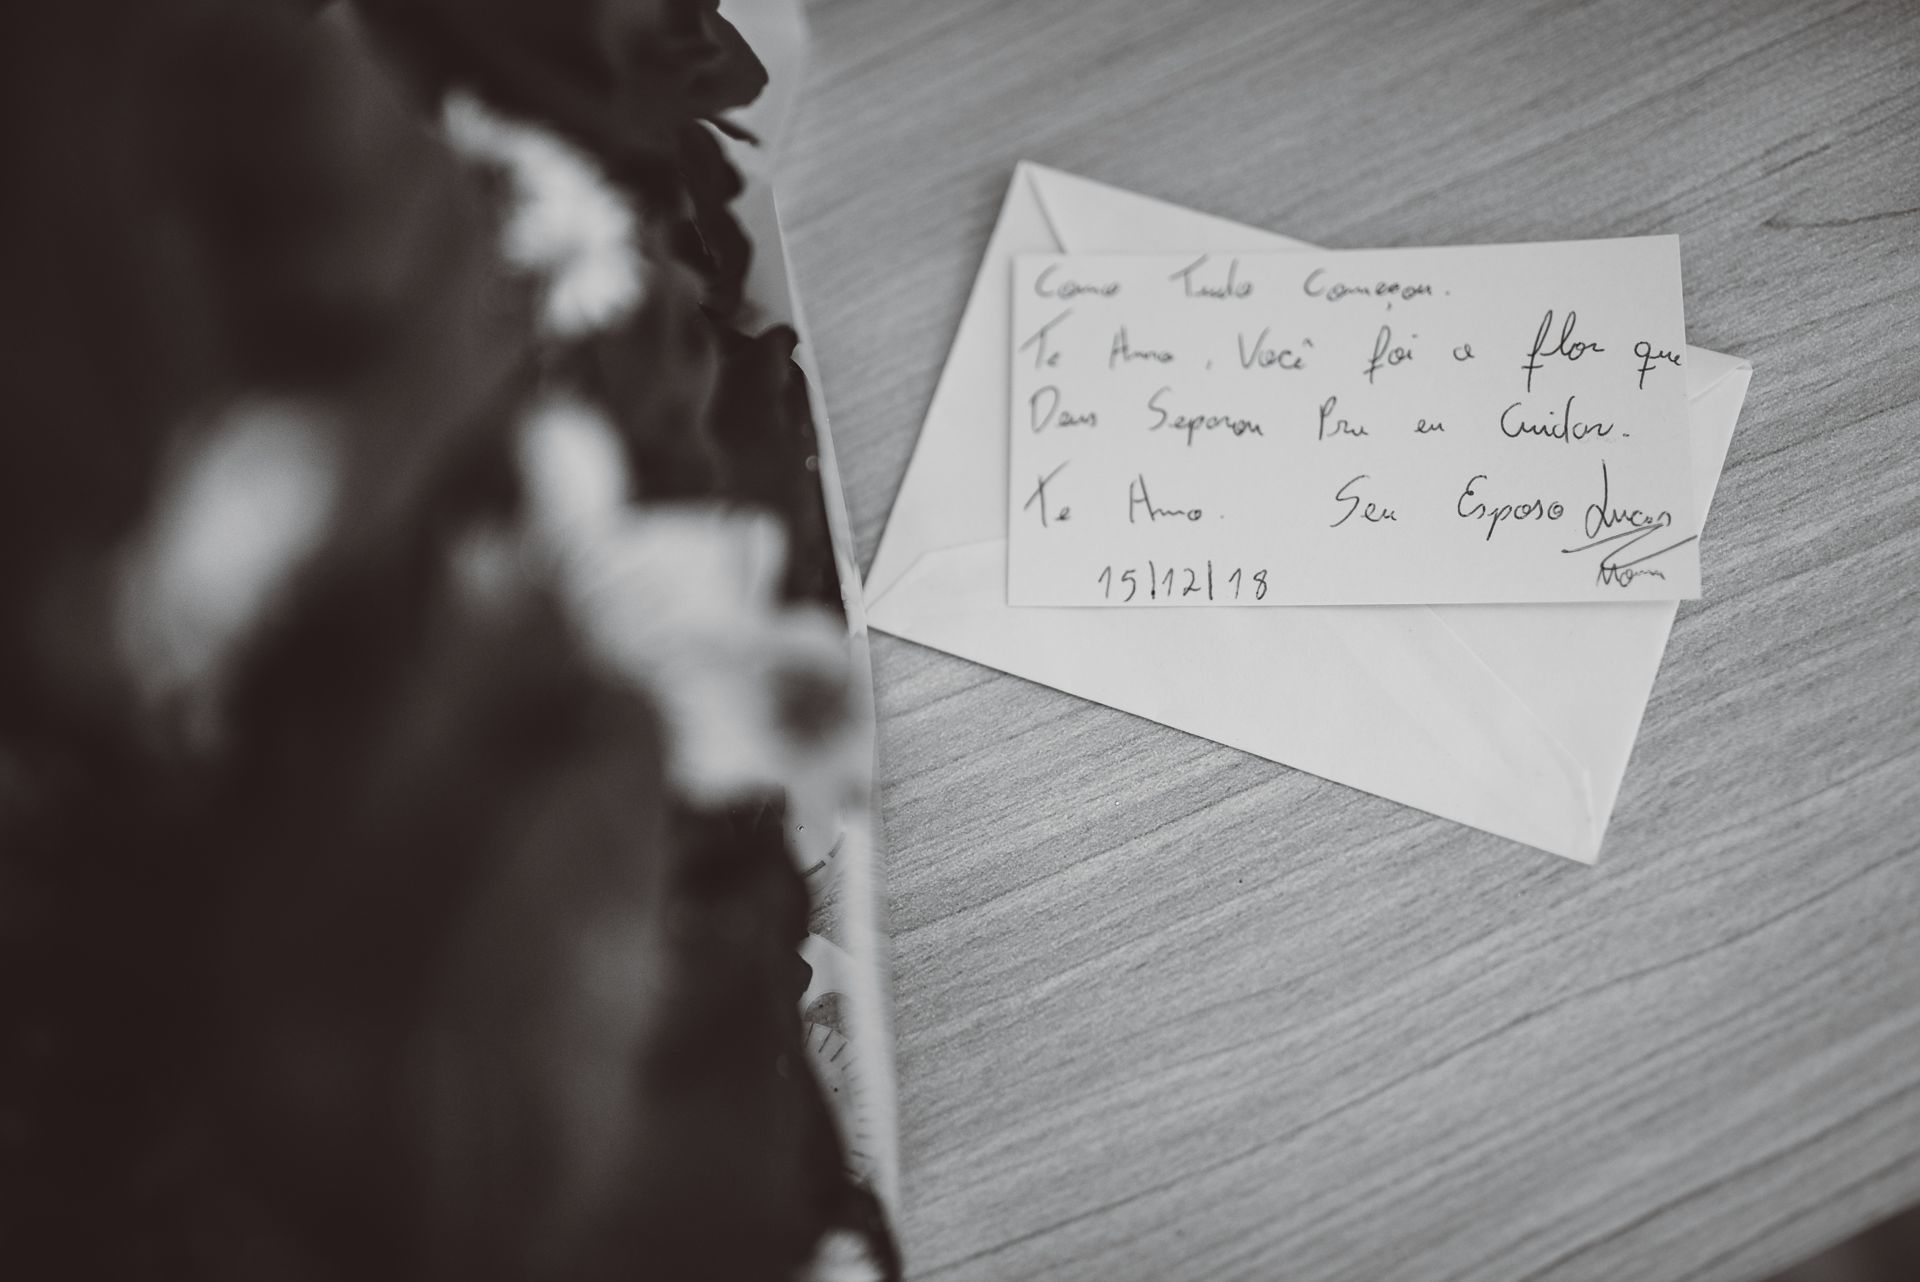 Como Tudo Começou.
Te Amo, Você foi a flor que
Deus Separou Pra eu Cuidar.
Te Amo. Seu Esposo Lucas
15/12/18